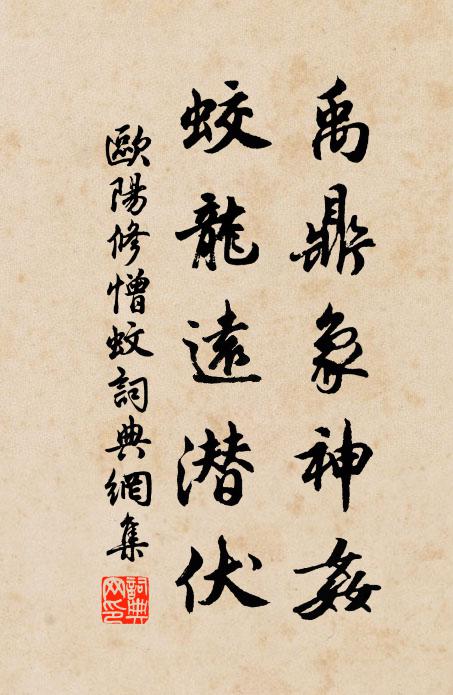 禹鼎象神姦
蛟龍遠潛伏
歐陽修憎蚊詞典網集
詞典